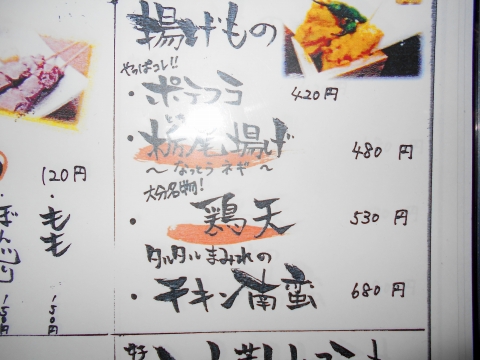 揚げもの
やっぱコレ!!
・ポテフラ 420円
・栃尾揚げ 480円
～なっとうネギ～
大分名物!
・鶏天 530円
タルタルまみれの
・チキン南蛮 680円
120円
・もも 150円
・ぼんじり 150円